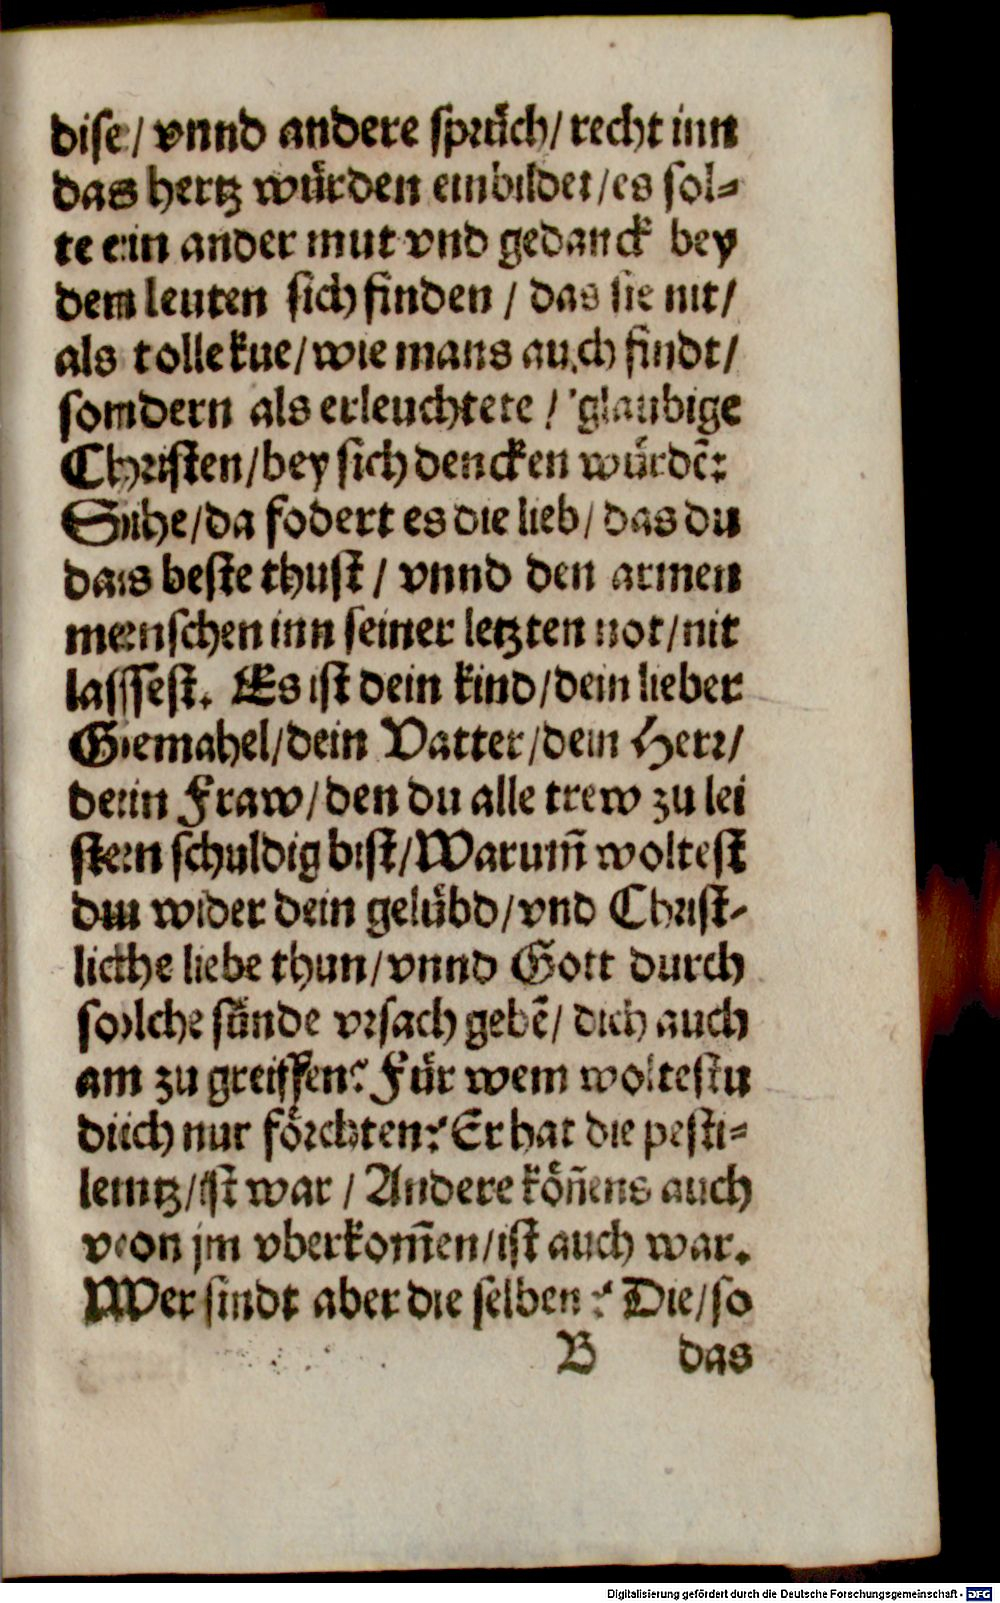 dise/ vnnd andere sprüch/ recht inn
das hertz würden einbildet/ es sol-
te ein ander mut vnd gedanck bey
dem leuten sich finden / das sie nit/
als tolle kue/ wie mans auch findt/
sondern als erleuchtete / glaubige
Christen/ bey sich dencken würdē:
Sihe/ da fodert es die lieb/ das du
das beste thust / vnnd den armen
menschen inn seiner letzten not/ nit
lassest. Es ist dein kind/ dein lieber
Gemahel/ dein Vatter/ dein Herr/
dein Fraw/ den du alle trew zu lei
sten schuldig bist/ Warum̄ woltest
du wider dein gelübd/ vnd Christ-
liche liebe thun/ vnnd Gott durch
solche sünde vrsach gebē/ dich auch
an zu greiffen? Für wem woltestu
dich nur förchten? Er hat die pesti-
lentz/ ist war / Andere kön̄ens auch
von jm vberkom̄en/ ist auch war.
Wer sindt aber die selben? Die/ so
B das
Digitalisierung gefördert durch die Deutsche Forschungsgemeinschaft - DFG